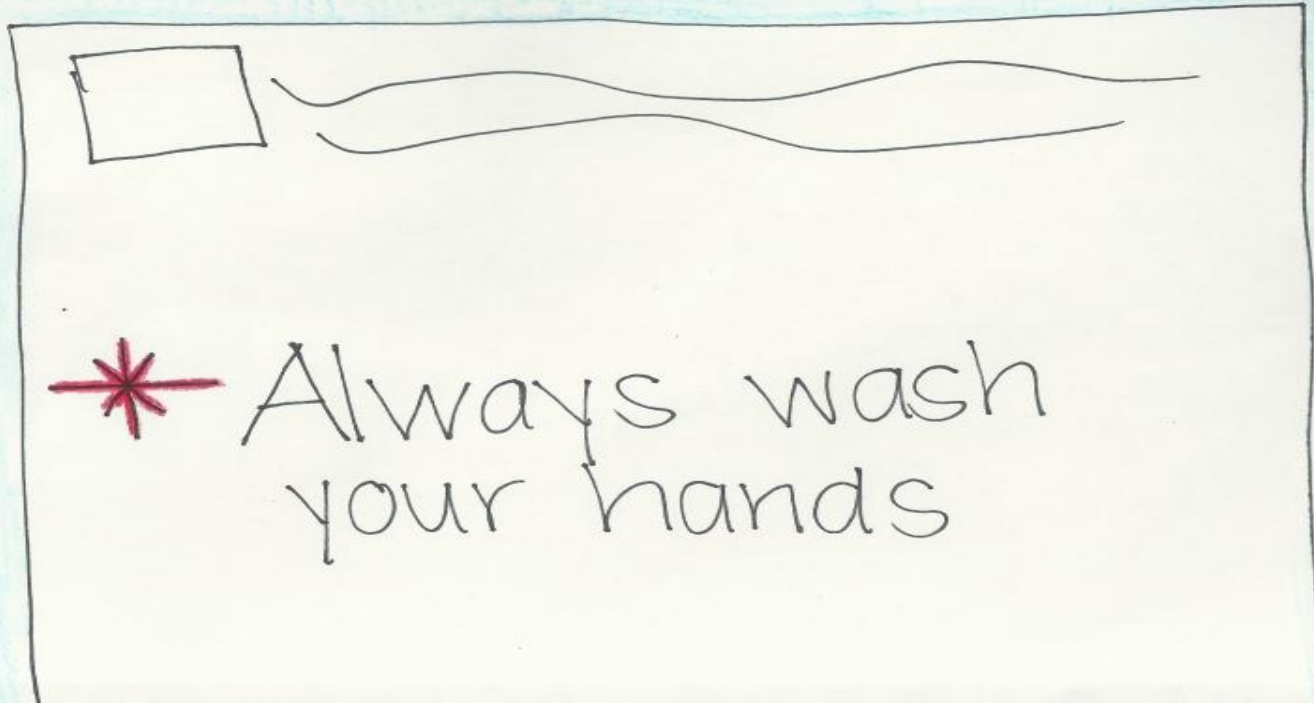 Always wash
your hands